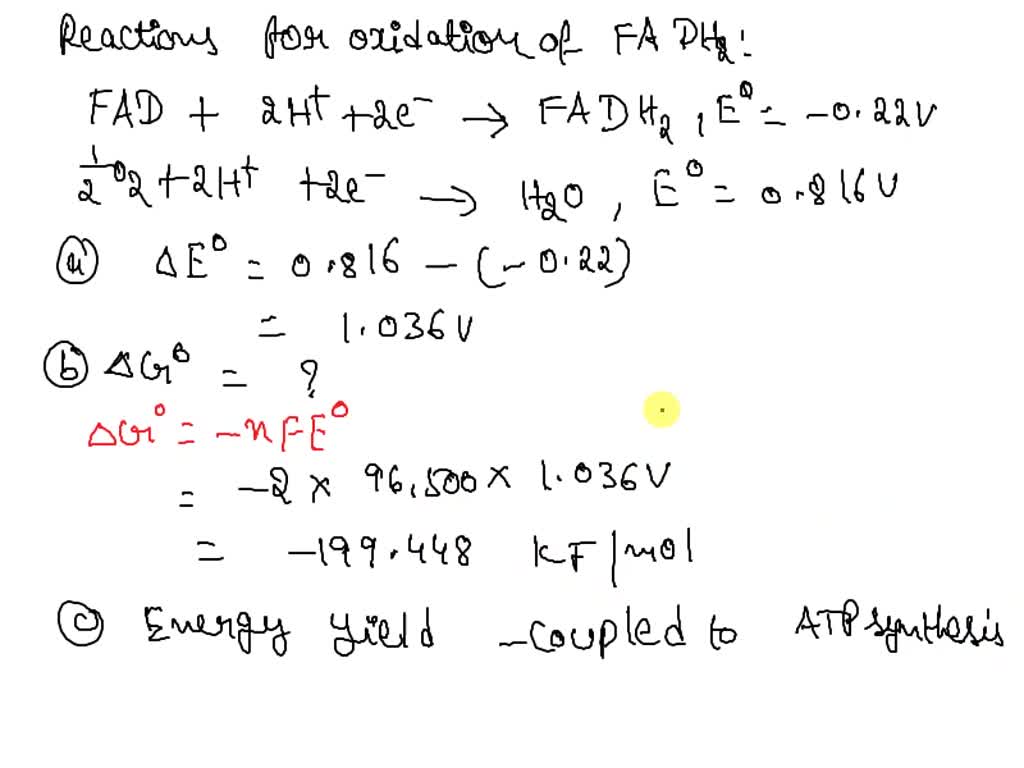 Reactions for oxidation of FADH₂:
FAD + 2H⁺ + 2e⁻ → FADH₂, E⁰ = -0.22V
1/2 O2 + 2H⁺ + 2e⁻ → H2O, E⁰ = 0.816V
(a) ΔE⁰ = 0.816 - (-0.22)
= 1.036V
(b) ΔG⁰ = ?
ΔG⁰ = -nFE⁰
= -2 × 96,500 × 1.036V
= -199.448 KJ/mol
(c) Energy yield - coupled to ATP synthesis